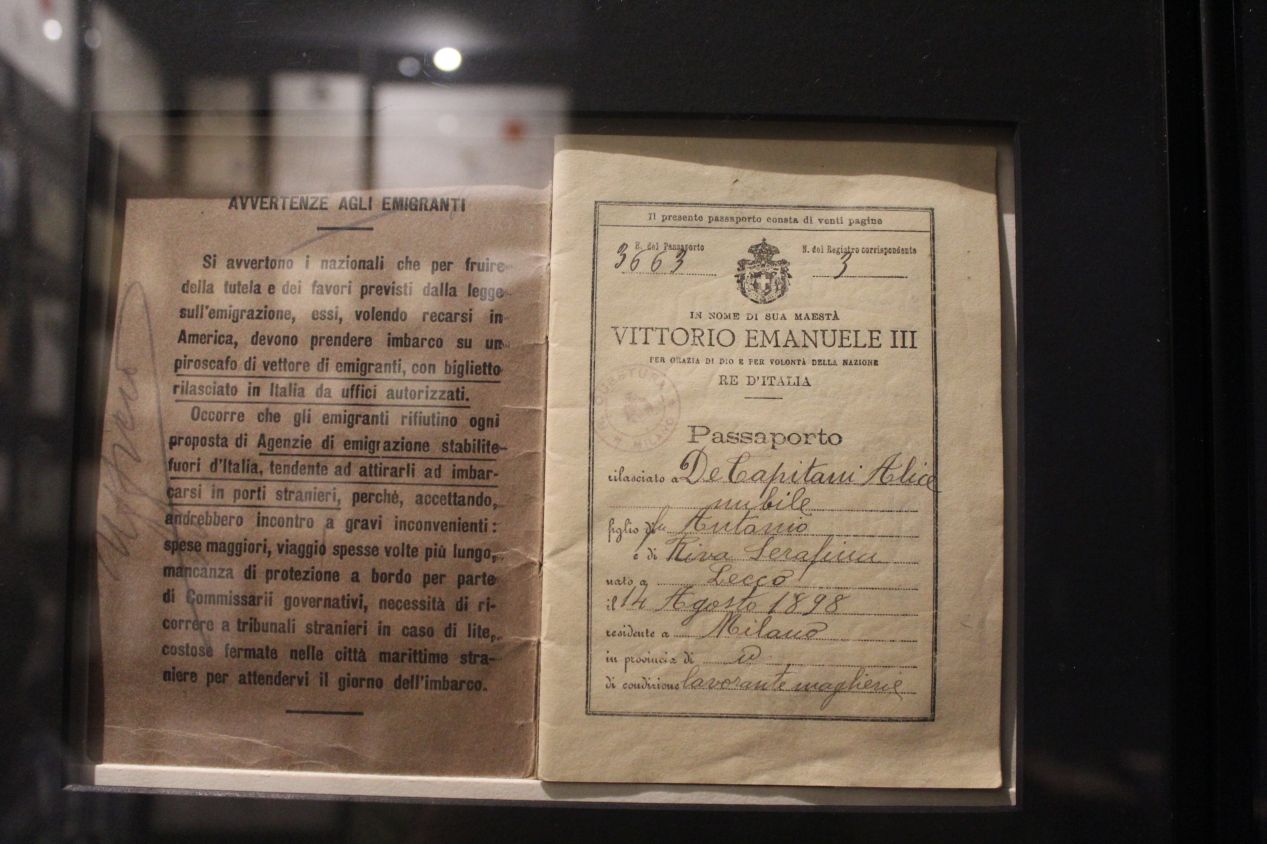 AVVERTENZE AGLI EMIGRANTI
Si avvertono i nazionali che per fruire
della tutela e dei favori previsti dalla legge
sull'emigrazione, essi, volendo recarsi in
America, devono prendere imbarco su un
piroscafo di vettore di emigranti, con biglietto
rilasciato in Italia da uffici autorizzati.
Occorre che gli emigranti rifiutino ogni
proposta di Agenzie di emigrazione stabilite
fuori d'Italia, tendente ad attirarli ad imbar-
carsi in porti stranieri, perché, accettando,
andrebbero incontro a gravi inconvenienti:
spese maggiori, viaggio spesse volte più lungo,
mancanza di protezione a bordo per parte
di Commissarii governativi, necessità di ri-
correre a tribunali stranieri in caso di lite,
costose fermate nelle città marittime stra-
niere per attendervi il giorno dell'imbarco.
Il presente passaporto consta di venti pagine
N. del Passaporto
3663
N. del Registro corrispondente
3
IN NOME DI SUA MAESTÀ
VITTORIO EMANUELE III
PER GRAZIA DI DIO E PER VOLONTÀ DELLA NAZIONE
RE D'ITALIA
QUESTURA
MILANO
Passaporto
rilasciato a De Capitani Alice
nubile
figlio di fu Antonio
e di Riva Serafina
nato a Lecco
il 14 Agosto 1898
residente a Milano
in provincia di
di condizione lavorante maglierie